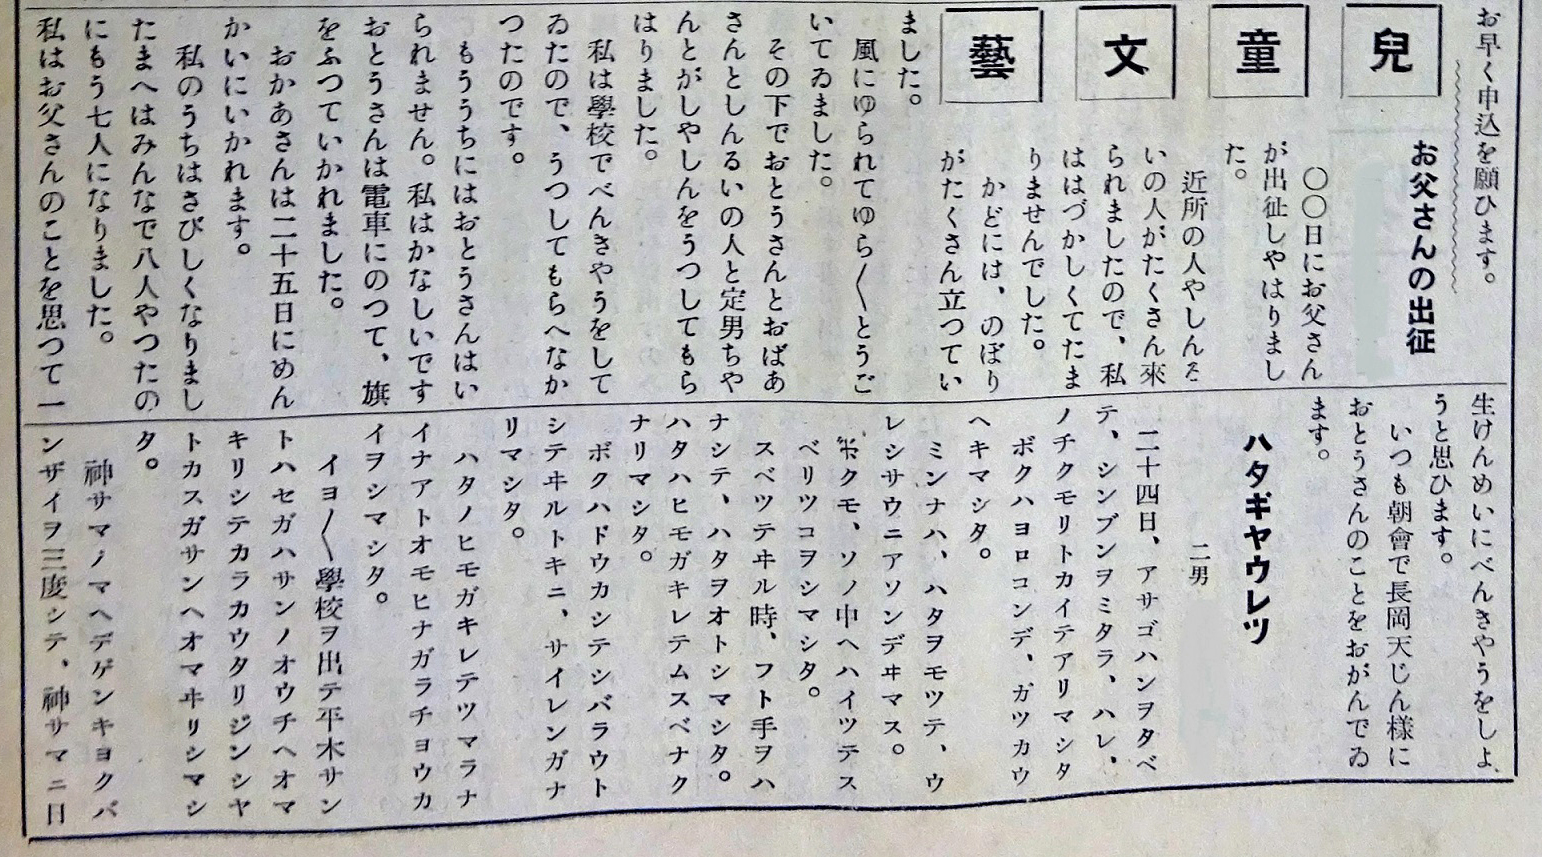 お早く申込を願ひます。
兒童文藝
お父さんの出征
〇〇日にお父さん
が出征しやはりまし
た。
近所の人やしんる
いの人がたくさん來
られましたので、私
ははづかしくてたま
りませんでした。
かどには、のぼり
がたくさん立つてい
ました。
風にゆられてゆら〱とうご
いてゐました。
その下でおとうさんとおばあ
さんとしんるいの人と定男ちや
んとがしやしんをうつしてもら
はりました。
私は學校でべんきやうをして
ゐたので、うつしてもらへなか
つたのです。
もううちにはおとうさんはい
られません。私はかなしいです
おとうさんは電車にのつて、旗
をふつていかれました。
おかあさんは二十五日にめん
かいにいかれます。
私のうちはさびしくなりまし
たまへはみんなで八人やつたの
にもう七人になりました。
私はお父さんのことを思つて一
生けんめいにべんきやうをしよ
うと思ひます。
いつも朝會で長岡天じん様に
おとうさんのことをおがんでゐ
ます。
ハタギヤウレツ
二男
二十四日、アサゴハンヲタベ
テ、シンブンヲミタラ、ハレ、
ノチクモリトカイテアリマシタ
ボクハヨロコンデ、ガツカウ
ヘキマシタ。
ミンナハ、ハタヲモツテ、ウ
レシサウニアソンデヰマス。
ボクモ、ソノ中ヘハイツテス
ベリツコヲシマシタ。
スベツテヰル時、フト手ヲハ
ナシテ、ハタヲオトシマシタ。
ハタハヒモガキレテムスベナク
ナリマシタ。
ボクハドウカシテシバラウト
シテヰルトキニ、サイレンガナ
リマシタ。
ハタノヒモガキレテツマラナ
イナアトオモヒナガラチヨウカ
イヲシマシタ。
イヨ〱學校ヲ出テ平木サン
トハセガハサンノオウチヘオマ
キリシテカラカウタリジンシヤ
トカスガサンヘオマヰリシマシ
タ。
神サマノマヘデゲンキヨクバ
ンザイヲ三度シテ、神サマニ日